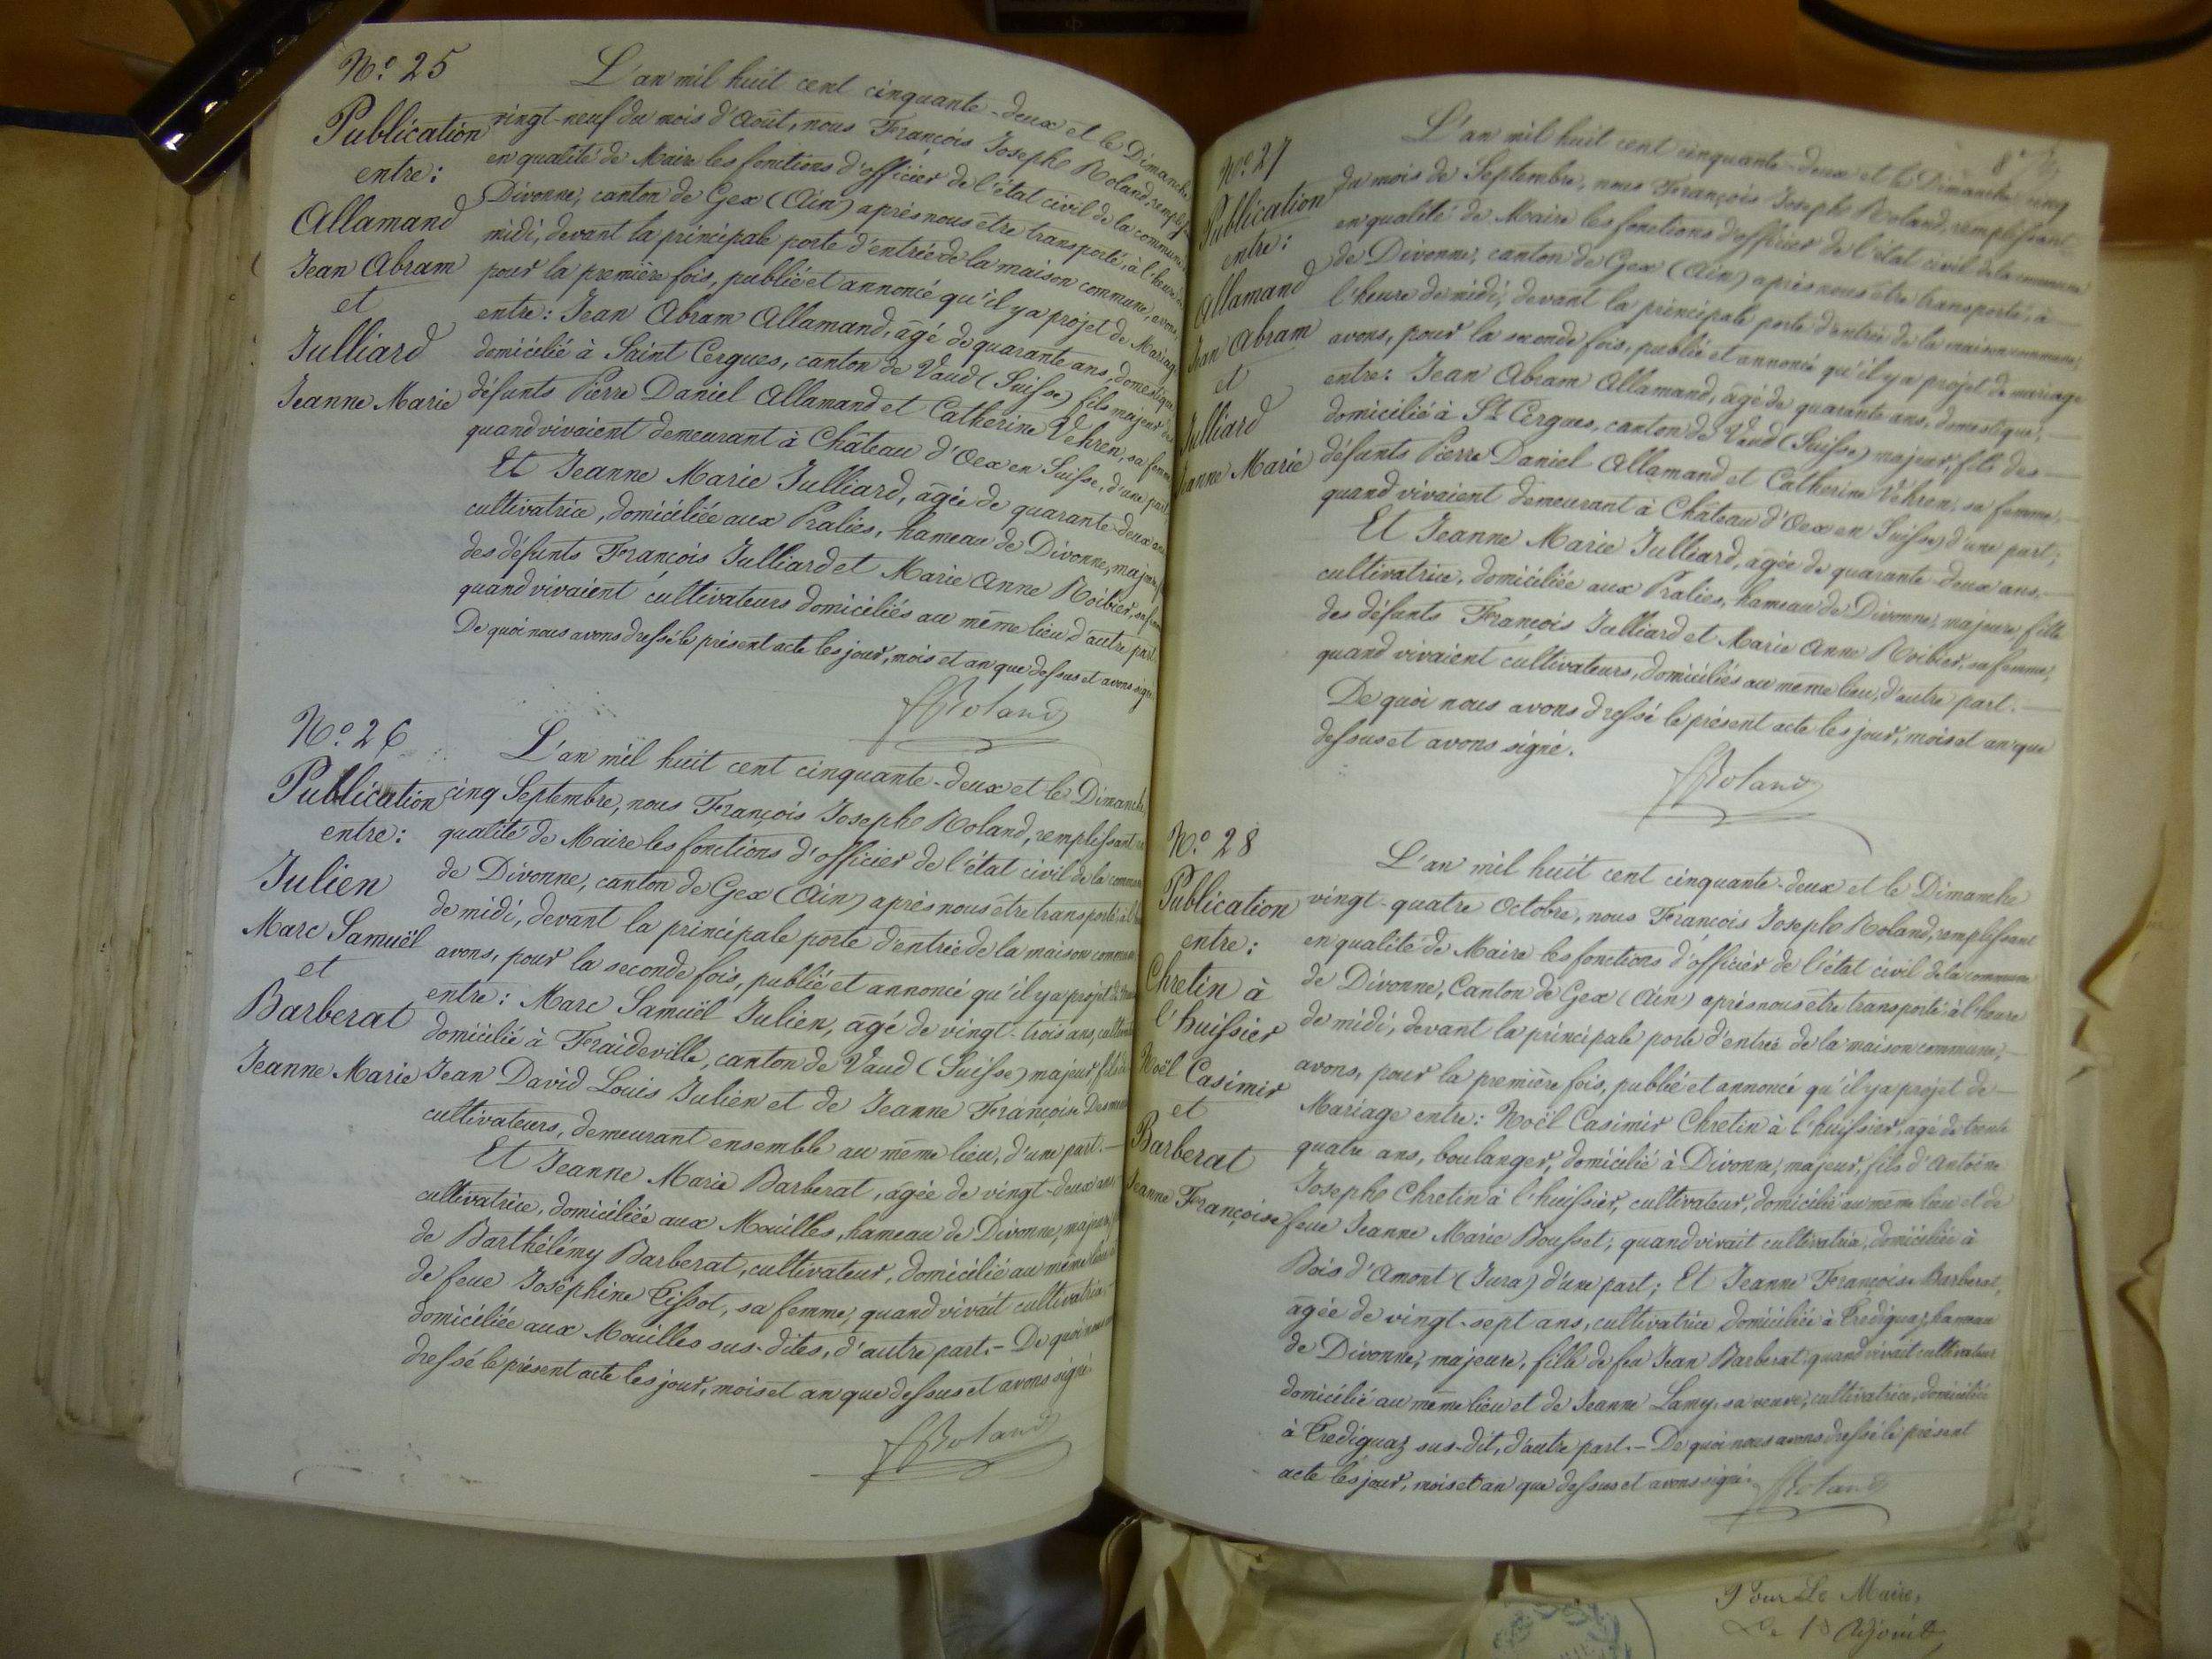 Nº 25
Publication
entre:
Allamand
Jean Abram
et
Julliard
Jeanne Marie
L'an mil huit cent cinquante-deux et le Dimanche
vingt-neuf du mois d'Août, nous François Joseph Roland, remplissant
en qualité de Maire les fonctions d'officier de l'état civil de la commune de
Divonne, canton de Gex (Ain) après nous être transporté, à l'heure de
midi, devant la principale porte d'entrée de la maison commune, avons,
pour la première fois, publié et annoncé qu'il y a projet de Mariage
entre: Jean Abram Allamand, âgé de quarante ans, domestique,
domicilié à Saint Cergues, canton de Vaud (Suisse) fils majeur des
défunts Pierre Daniel Allamand et Catherine Vehren, sa femme
quand vivaient demeurant à Château d'Oex en Suisse, d'une part,
Et Jeanne Marie Julliard, âgée de quarante-deux ans
cultivatrice, domiciliée aux Pralies, hameau de Divonne, majeure,
des défunts François Julliard et Marie Anne Roibier, sa femme
quand vivaient cultivateurs domiciliés au même lieu d'autre part
De quoi nous avons dressé le présent acte les jour, mois et an que dessus et avons signé
FJRoland
Nº 26
Publication
entre:
Julien
Marc Samuël
et
Barberat
Jeanne Marie
L'an mil huit cent cinquante-deux et le Dimanche
cinq Septembre, nous François Joseph Roland, remplissant en
qualité de Maire les fonctions d'officier de l'état civil de la commune
de Divonne, canton de Gex (Ain) après nous être transporté à l'
de midi, devant la principale porte d'entrée de la maison commune
avons, pour la seconde fois, publié et annoncé qu'il y a projet de
entre: Marc Samuël Julien, âgé de vingt-trois ans,
domicilié à Fraideville, canton de Vaud (Suisse) majeur, fils de
Jean David Louis Julien et de Jeanne Françoise
cultivateurs, demeurant ensemble au même lieu, d'une part. —
Et Jeanne Marie Barberat, âgée de vingt-deux ans
cultivatrice, domiciliée aux Mouilles, hameau de Divonne, majeure,
de Barthélémy Barberat, cultivateur, domicilié au même lieu et
de feue Joséphine Tissot, sa femme, quand vivait cultivatrice
domiciliée aux Mouilles sus-dites, d'autre part. — De quoi nous
dressé le présent acte les jour, mois et an que dessus et avons signé
FJRoland
8
Nº 27
Publication
entre:
Allamand
Jean Abram
et
Julliard
Jeanne Marie
L'an mil huit cent cinquante-deux et le Dimanche cinq
du mois de Septembre, nous François Joseph Roland, remplissant
en qualité de Maire les fonctions d'officier de l'état civil de la commune
de Divonne, canton de Gex (Ain) après nous être transporté, à —
l'heure de midi, devant la principale porte d'entrée de la maison commune,
avons, pour la seconde fois, publié et annoncé qu'il y a projet de mariage
entre: Jean Abram Allamand, âgé de quarante ans, domestique, —
domicilié à St. Cergues, canton de Vaud (Suisse) majeur, fils des —
défunts Pierre Daniel Allamand et Catherine Vehren, sa femme, —
quand vivaient demeurant à Château d'Oex en Suisse, d'une part;
Et Jeanne Marie Julliard, âgée de quarante-deux ans, —
cultivatrice, domiciliée aux Pralies, hameau de Divonne, majeure fille
des défunts François Julliard et Marie Anne Roibier, sa femme;
quand vivaient cultivateurs, domiciliés au même lieu, d'autre part. —
De quoi nous avons dressé le présent acte les jour, mois et an que
dessus et avons signé.
FJRoland
Nº 28
Publication
entre:
Chretin à
l'huissier
Noël Casimir
et
Barberat
Jeanne Françoise
L'an mil huit cent cinquante-deux et le Dimanche
vingt-quatre Octobre, nous François Joseph Roland, remplissant
en qualité de Maire les fonctions d'officier de l'état civil de la commune
de Divonne, Canton de Gex (Ain) après nous être transporté à l'heure
de midi, devant la principale porte d'entrée de la maison commune, —
avons, pour la première fois, publié et annoncé qu'il y a projet de —
Mariage entre: Noël Casimir Chretin à l'huissier, âgé de trente
quatre ans, boulanger, domicilié à Divonne, majeur, fils d'Antoine
Joseph Chretin à l'huissier, cultivateur, domicilié au même lieu et de
feue Jeanne Marie Bousset, quand vivait cultivatrice, domiciliée à
Bois d'Amont (Jura) d'une part; Et Jeanne Françoise Barberat,
âgée de vingt-sept ans, cultivatrice domiciliée à Crediguaz, hameau
de Divonne, majeure, fille de feu Jean Barberat, quand vivait cultivateur
domicilié au même lieu et de Jeanne Lamy, sa veuve, cultivatrice, domiciliée
à Crediguaz sus-dit, d'autre part. — De quoi nous avons dressé le présent
acte les jour, mois et an que dessus et avons signé. FJRoland
Pour Le Maire,
Le 1er Adjoint